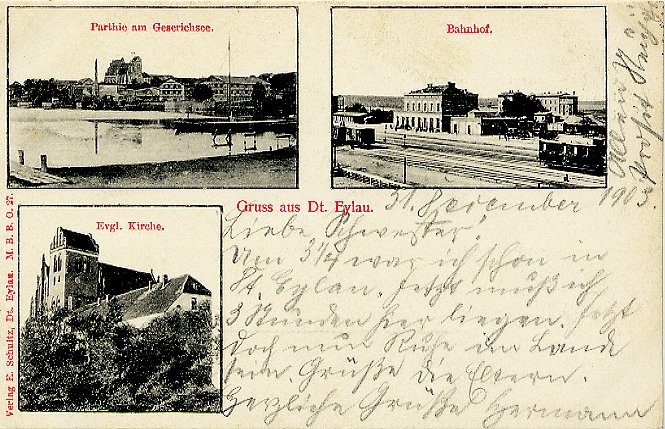 Parthie am Geserichsee.
Bahnhof.
Allen
Prosit
Gruss aus Dt. Eylau.
31. Dezember 1903
Evgl. Kirche.
Liebe Schwester!
Um 3¼ war ich schon in
Dt. Eylau. Jetzt muß ich
3 Stunden hier liegen. Jetzt
doch nun Ruhe im Lande
sein. Grüße die Eltern.
Herzliche Grüße Hermann
Verlag E. Schultz, Dt. Eylau. M. B. B. O. 27.